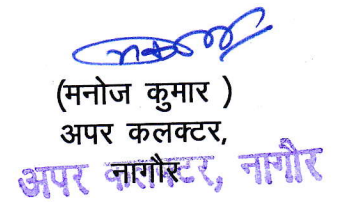 (मनोज कुमार )
अपर कलक्टर,
नागौर
अपर कलक्टर, नागौर